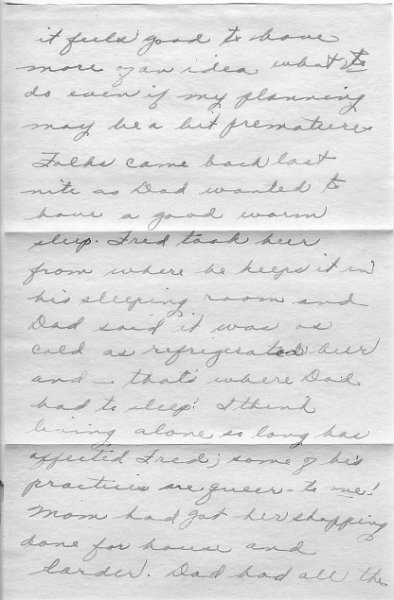 it feels good to have
more of an idea what to
do even if my planning
may be a bit premature.
Folks came back last
nite as Dad wanted to
have a good warm
sleep. Fred took beer
from where he keeps it in
his sleeping room and
Dad said it was as
cold as refrigerated beer
and - that's where Dad
had to sleep! I think
living alone so long has
affected Fred; some of his
practices are queer - to me!
Mom had got her shopping
done for house and
larder. Dad had all the